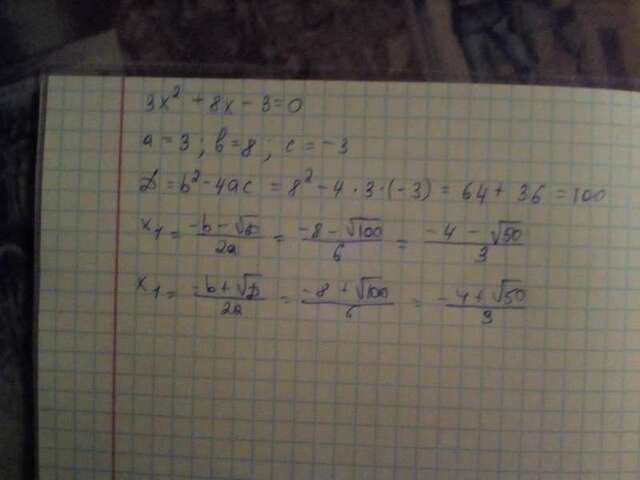 3x² + 8x - 3 = 0
a = 3; b = 8; c = -3
D = b² - 4ac = 8² - 4 · 3 · (-3) = 64 + 36 = 100
x₁ = (-b - √D)/2a = (-8 - √100)/6 = (-4 - √50)/3
x₁ = (-b + √D)/2a = (-8 + √100)/6 = (-4 + √50)/3